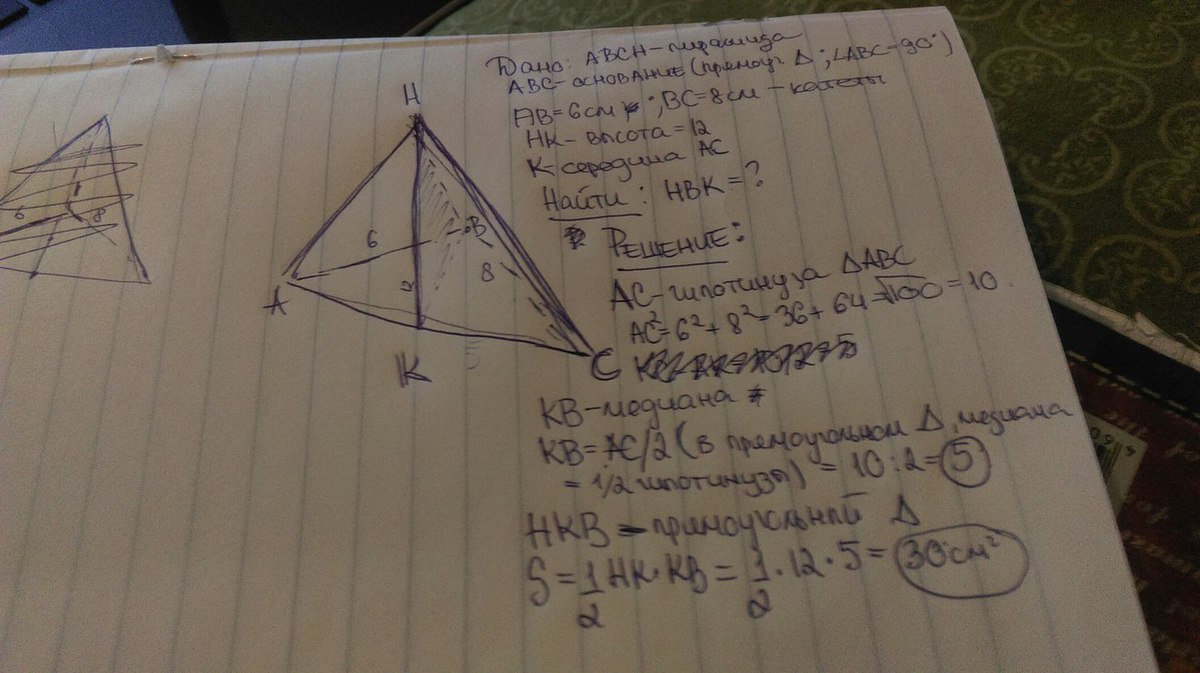 Дано: ABCH - пирамида
ABC - основание (прямоуг. Δ; ∠ABC = 90°)
AB = 6см ; BC = 8см - катеты
HK - высота = 12
K - середина AC
Найти: HBK = ?
РЕШЕНИЕ:
AC - гипотинуза ΔABC
AC² = 6² + 8² = 36 + 64 = √100 = 10.
KB - медиана
KB = AC/2 (в прямоугольном Δ, медиана
= 1/2 гипотинузы) = 10 : 2 = 5
HKB - прямоугольный Δ
S = 1/2 HK · KB = 1/2 · 12 · 5 = 30 см²
H
6
B
8
A
K
C
6
8